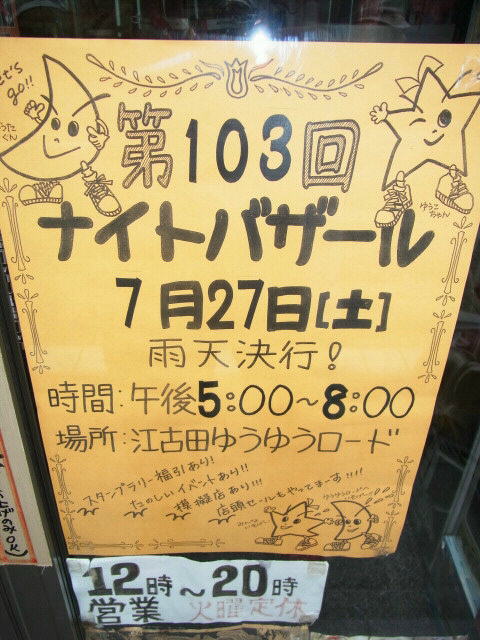 Let's go!!
うたくん
第103回
ゆうこちゃん
ナイトバザール
7月27日[土]
雨天決行!
時間:午後5:00~8:00
場所:江古田ゆうゆうロード
スタンプラリー福引あり!
たのしいイベントあり!!
模擬店あり!!!
店頭セールもやってまーす!!!!
12時~20時
営業 火曜定休